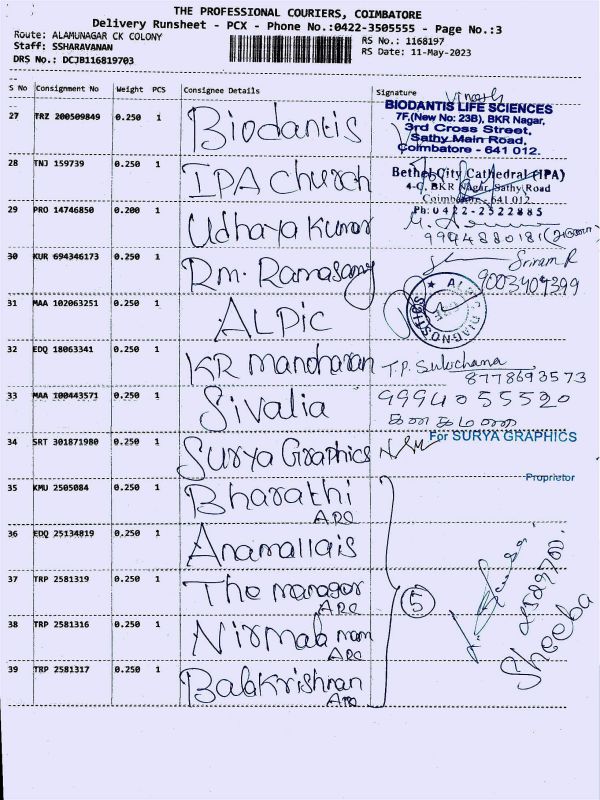 THE PROFESSIONAL COURIERS, COIMBATORE
Delivery Runsheet - PCX - Phone No.:0422-3505555 - Page No.:3
Route: ALAMUNAGAR CK COLONY
RS No.: 1168197
Staff: SSHARAVANAN
RS Date: 11-May-2023
DRS No.: DCJB116819703
S No Consignment No Weight PCS Consignee Details Signature
27 TRZ 200509849 0.250 1 Biodantis
BIODANTIS LIFE SCIENCES
7F,(New No: 23B), BKR Nagar,
3rd Cross Street,
Sathy Main Road,
Coimbatore - 641 012.
28 TNJ 159739 0.250 1 IPA Church
Bethel City Cathedral (IPA)
4-C, BKR Nagar, Sathy Road
Coimbatore - 641 012
Ph: 0422-2522885
29 PRO 14746850 0.200 1 Udhaya Kumar
9994880181
30 KUR 694346173 0.250 1 Rm. Ramasamy
Sriram R
9003407399
31 MAA 102063251 0.250 1 ALPIC
32 EDQ 18063341 0.250 1 KR Manoharan T.P. Sulochana
8778693573
33 MAA 100443571 0.250 1 Sivalia 9994055520
34 SRT 301871980 0.250 1 Surya Graphics
For SURYA GRAPHICS
Proprietor
35 KMU 2505084 0.250 1 Bharathi
36 EDQ 25134819 0.250 1 Anamallais
37 TRP 2581319 0.250 1 The manager
5
38 TRP 2581316 0.250 1 Nirmala mam
39 TRP 2581317 0.250 1 Balakrishnan
Sheeba